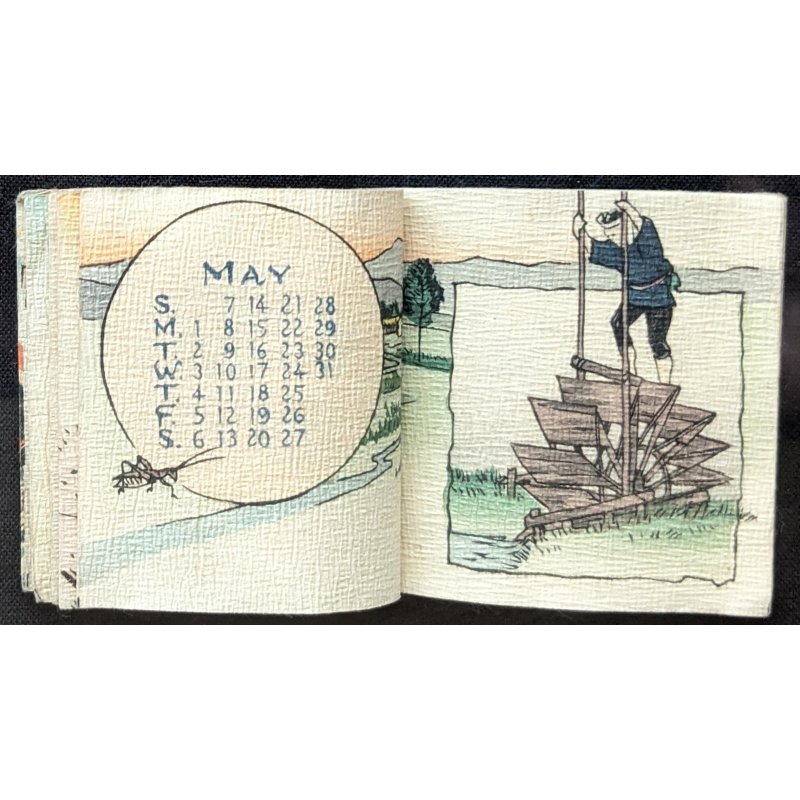 MAY
S. 7 14 21 28
M. 1 8 15 22 29
T. 2 9 16 23 30
W. 3 10 17 24 31
T. 4 11 18 25
F. 5 12 19 26
S. 6 13 20 27